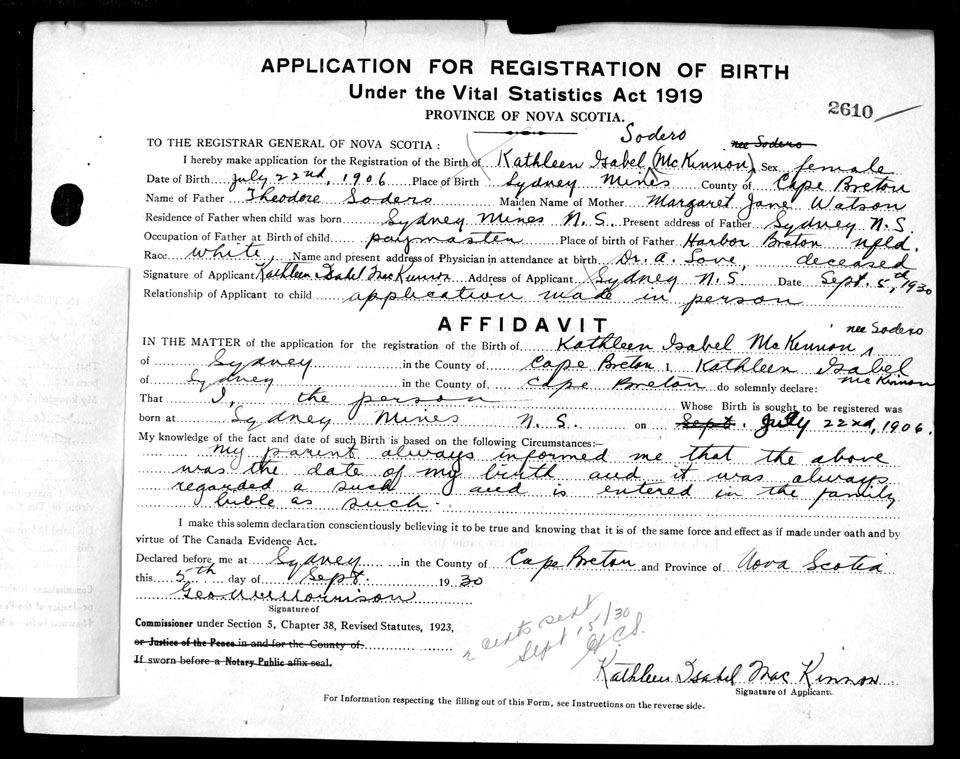 APPLICATION FOR REGISTRATION OF BIRTH
Under the Vital Statistics Act 1919
PROVINCE OF NOVA SCOTIA.
2610
TO THE REGISTRAR GENERAL OF NOVA SCOTIA :
Sodero nee Sodero
I hereby make application for the Registration of the Birth of Kathleen Isabel (McKinnon) Sex female
Date of Birth July 22nd, 1906 Place of Birth Sydney Mines County of Cape Breton
Name of Father Theodore Sodero Maiden Name of Mother Margaret Jane Watson
Residence of Father when child was born Sydney Mines N.S. Present address of Father Sydney N.S.
Occupation of Father at Birth of child paymaster Place of birth of Father Harbor Breton Nfld.
Race white, Name and present address of Physician in attendance at birth Dr. A. Love, deceased
Signature of Applicant Kathleen Isabel MacKinnon Address of Applicant Sydney N.S Date Sept. 5th, 1930
Relationship of Applicant to child application made in person
AFFIDAVIT
nee Sodero
IN THE MATTER of the application for the registration of the Birth of Kathleen Isabel McKinnon
of Sydney in the County of Cape Breton I, Kathleen Isabel
McKinnon
of Sydney in the County of Cape Breton do solemnly declare:
That I, the person Whose Birth is sought to be registered was
born at Sydney Mines N.S. on Sept. July 22nd, 1906.
My knowledge of the fact and date of such Birth is based on the following Circumstances:—
My parent always informed me that the above
was the date of my birth and it was always
regarded a such and is entered in the family
bible as such.
I make this solemn declaration conscientiously believing it to be true and knowing that it is of the same force and effect as if made under oath and by
virtue of The Canada Evidence Act.
Declared before me at Sydney in the County of Cape Breton and Province of Nova Scotia
this 5th day of Sept. 1930
Morrison
Signature of
Commissioner under Section 5, Chapter 38, Revised Statutes, 1923,
or Justice of the Peace in and for the County of
If sworn before a Notary Public affix seal.
cents sent
Sept 15/30
Kathleen Isabel MacKinnon
Signature of Applicant.
For Information respecting the filling out of this Form, see Instructions on the reverse side.